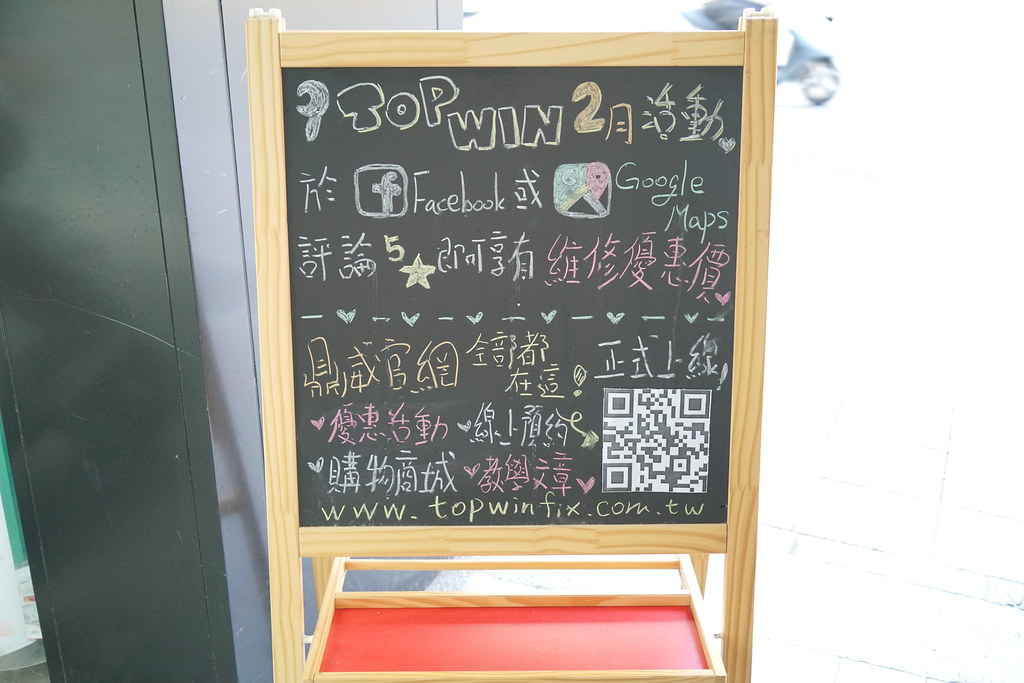 TOPWIN 2月活動
於 f Facebook 或 G Google Maps
評論 5 即可享有 維修優惠價
鼎威官網 全部都在這! 正式上線!
優惠活動 線上預約
購物商城 教學文章
www.topwinfix.com.tw